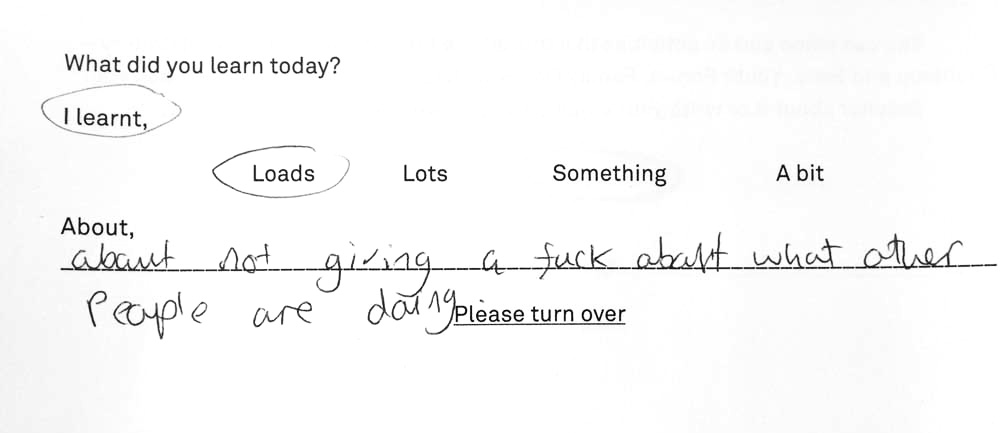 What did you learn today?
I learnt,
Loads Lots Something A bit
About,
about not giving a fuck about what other
People are doing
Please turn over